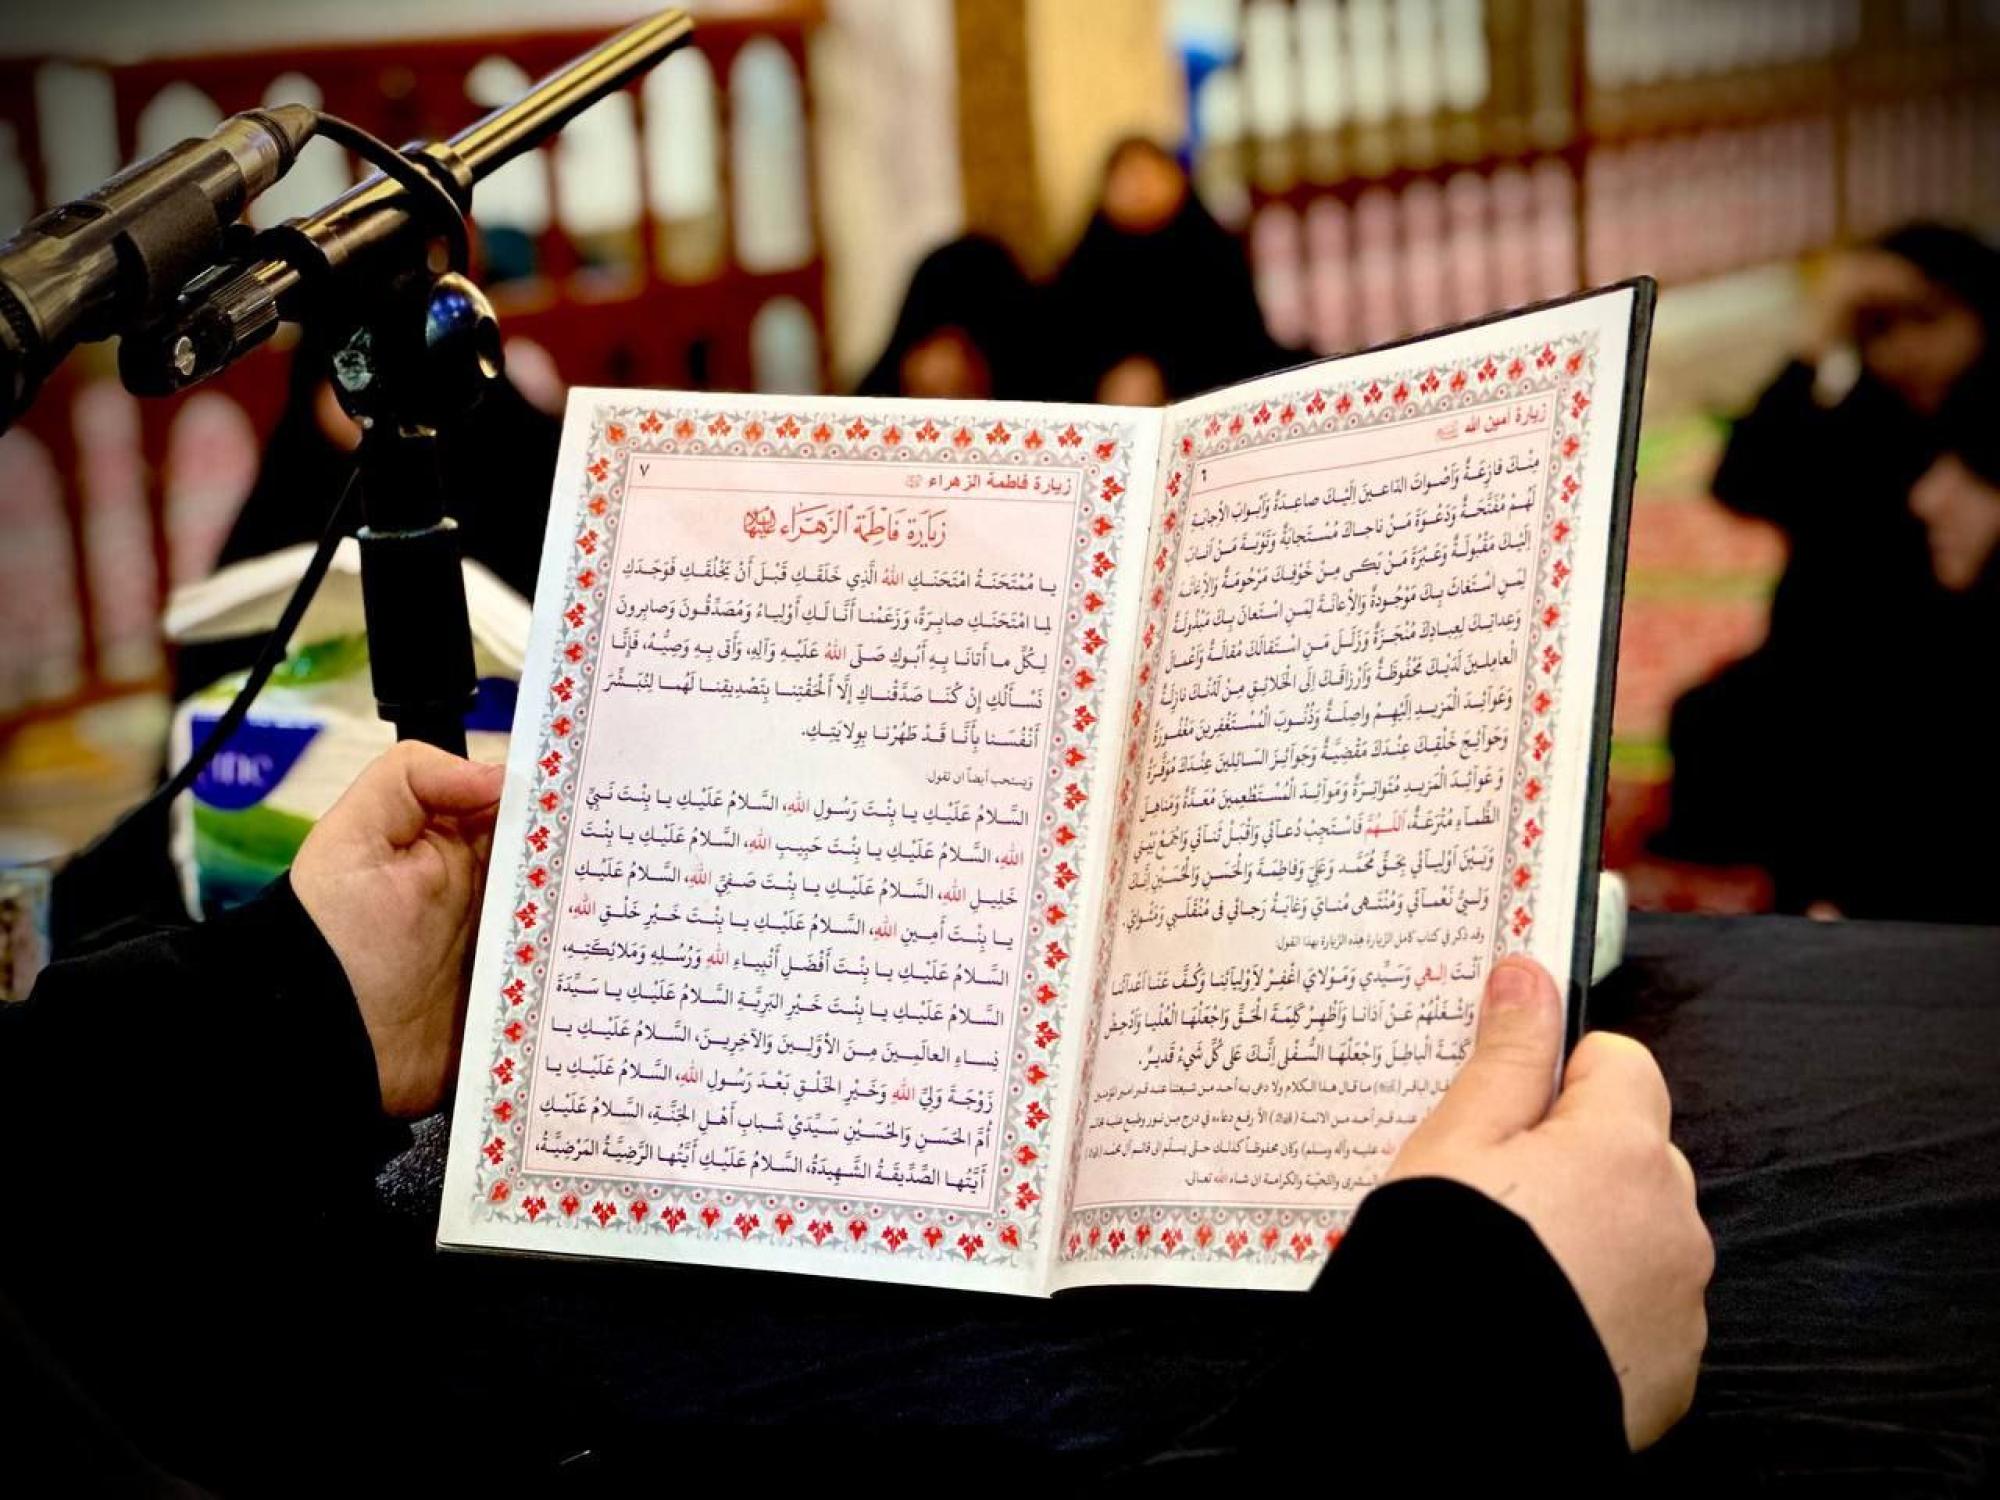 زيارة أمين الله
٦
مِنْكَ فازِعَةٌ وَأَصْواتَ الدّاعـينَ إِلَيْكَ صاعِدَةٌ وَأَبْوابَ الْأِجابَةِ
لَهُمْ مُفَتَّحَةٌ وَدَعْوَةَ مَنْ ناجاكَ مُسْتَجابَةٌ وَتَوْبَةَ مَنْ اَنابَ
إِلَيْكَ مَقْبُولَةٌ وَعَبْرَةَ مَنْ بَكى مِنْ خَوْفِكَ مَرْحُومَةٌ وَالْإِغاثَةَ
لِمَنِ اسْتَغاثَ بِكَ مَوْجُودَةٌ وَالْإِعانَةَ لِمَنِ اسْتَعانَ بِكَ مَبْذُولَةٌ
وَعِداتِكَ لِعِبادِكَ مُنْجَزَةٌ وَزَلَلَ مَنِ اسْتَقالَكَ مُقالَةٌ وَأَعْمالَ
الْعامِلينَ لَدَيْكَ مَحْفُوظَةٌ وَأَرْزاقَكَ إِلَى الْخَلائِقِ مِنْ لَدُنْكَ نازِلَةٌ
وَعَوآئِدَ الْمَزيدِ إِلَيْهِمْ واصِلَةٌ وَذُنُوبَ الْمُسْتَغْفِرينَ مَغْفُورَةٌ
وَحَوآئِجَ خَلْقِكَ عِنْدَكَ مَقْضِيَّةٌ وَجَوآئِزَ السّائِلينَ عِنْدَكَ مُوَفَّرَةٌ
وَعَوآئِدَ الْمَزيدِ مُتَواتِرَةٌ وَمَوآئِدَ الْمُسْتَطْعِمينَ مُعَدَّةٌ وَمَناهِلَ
الظِّمآءِ مُتْرَعَةٌ، اَللّـهُمَّ فَاسْتَجِبْ دُعآئي وَاقْبَلْ ثَنآئي وَاجْمَعْ بَيْني
وَبَيْنَ أَوْلِيآئي بِحَقِّ مُحَمَّد وَعَلِيّ وَفاطِمَةَ وَالْحَسَنِ وَالْحُسَيْنِ إِنَّكَ
وَلِيُّ نَعْمآئي وَمُنْتَهى مُنايَ وَغايَةُ رَجائي فى مُنْقَلَبي وَمَثْوايَ.
وقد ذكر في كتاب كامل الزّيارة هذه الزّيارة بهذا القول:
أَنْتَ إِلـهي وَسَيِّدي وَمَوْلايَ اغْفِرْ لِأَوْلِيآئِنا وَكُفَّ عَنّا أَعْدآئَنا
وَاشْغَلْهُمْ عَنْ أَذانا وَأَظْهِرْ كَلِمَةَ الْحَقِّ وَاجْعَلْهَا الْعُلْيا وَأَدْحِضْ
كَلِمَةَ الْباطِلَ وَاجْعَلْهَا السُّفْلى إِنَّكَ عَلى كُلِّ شَيْءٍ قَديرٌ.
قال الباقر ما قال هذا الكلام ولا دعى به أحد من شيعتنا عند قبر امير المؤمنين
عند قبر أحد من الائمة الا رفع دعاءه في درج من نور وطبع عليه
عليه وآله وسلم) وكان محفوظاً كذلك حتى يسلم الى قائم آل محمد
البشرى والتحيّة والكرامة ان شاء الله تعالى.
زيارة فاطمة الزهراء
٧
زِيَارَة فَاطِمَة الزَهَرَاء
يـا مُمْتَحَنَـةُ امْتَحَنَـكِ اللهُ الَّذِي خَلَقَـكِ قَبْـلَ أَنْ يَخْلُقَـكِ فَوَجَـدَكِ
لِمـا امْتَحَنَكِ صابِـرَةً، وَزَعَمْنـا أَنّـا لَـكِ أَوْلِيـاءُ وَمُصَدِّقُـونَ وَصابِرونَ
لِـكُلِّ مـا أَتانَـا بِـهِ أَبُـوكِ صَلّى اللهُ عَلَيْـهِ وَآلِـهِ، وَأَتَى بِـهِ وَصِيُّـهُ، فَإِنَّـا
نَسْـأَلُكِ إِنْ كُنَّـا صَدَّقْنـاكِ إِلَّا أَلْحَقْتِنـا بِتَصْدِيقِنـا لَهُمـا لِنُبَـشِّرَ
أَنْفُسَـنا بِأَنَّـا قَـدْ طَهُرْنـا بِوِلايَتِـكِ.
ويستحب أيضاً ان تقول:
السَّـلامُ عَلَيْـكِ يـا بِنْـتَ رَسُولِ اللهِ، السَّـلامُ عَلَيْـكِ يـا بِنْـتَ نَـبِيِّ
اللهِ، السَّـلامُ عَلَيْـكِ يـا بِنْـتَ حَبِيـبِ اللهِ، السَّـلامُ عَلَيْـكِ يـا بِنْـتَ
خَلِيـلِ اللهِ، السَّـلامُ عَلَيْـكِ يـا بِنْـتَ صَفِـيِّ اللهِ، السَّـلامُ عَلَيْـكِ
يـا بِنْـتَ أَمِـينِ اللهِ، السَّـلامُ عَلَيْـكِ يـا بِنْـتَ خَـيْرِ خَلْـقِ اللهِ،
السَّـلامُ عَلَيْـكِ يـا بِنْـتَ أَفْضَـلِ أَنْبِيـاءِ اللهِ وَرُسُلِهِ وَمَلائِكَتِـهِ،
السَّـلامُ عَلَيْـكِ يـا بِنْـتَ خَـيْرِ البَرِيَّـةِ السَّـلامُ عَلَيْـكِ يـا سَـيِّدَةَ
نِسـاءِ العالَمِـينَ مِـنَ الأوَّلِـينَ وَالآخِرِيـنَ، السَّـلامُ عَلَيْـكِ يـا
زَوْجَـةَ وَلِيِّ اللهِ وَخَـيْرِ الخَلْـقِ بَعْـدَ رَسُولِ اللهِ، السَّـلامُ عَلَيْـكِ يـا
أُمَّ الحَسَـنِ وَالحُسَـيْنِ سَـيِّدَيْ شَـبابِ أَهْـلِ الجَنَّـةِ، السَّـلامُ عَلَيْـكِ
أَيَّتُهـا الصِّدِّيقَـةُ الشَّـهِيدَةُ، السَّـلامُ عَلَيْـكِ أَيَّتُهـا الرَّضِيَّـةُ المَرْضِيَّـةُ،